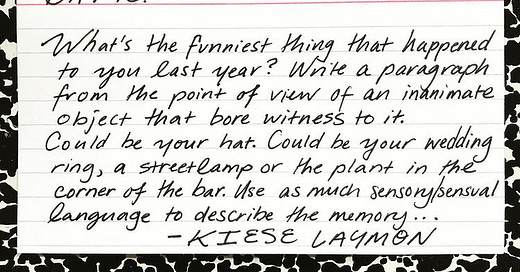 What's the funniest thing that happened
to you last year? Write a paragraph
from the point of view of an inanimate
object that bore witness to it.
Could be your hat. Could be your wedding
ring, a streetlamp or the plant in the
corner of the bar. Use as much sensory/sensual
language to describe the memory...
-KIESE LAYMON